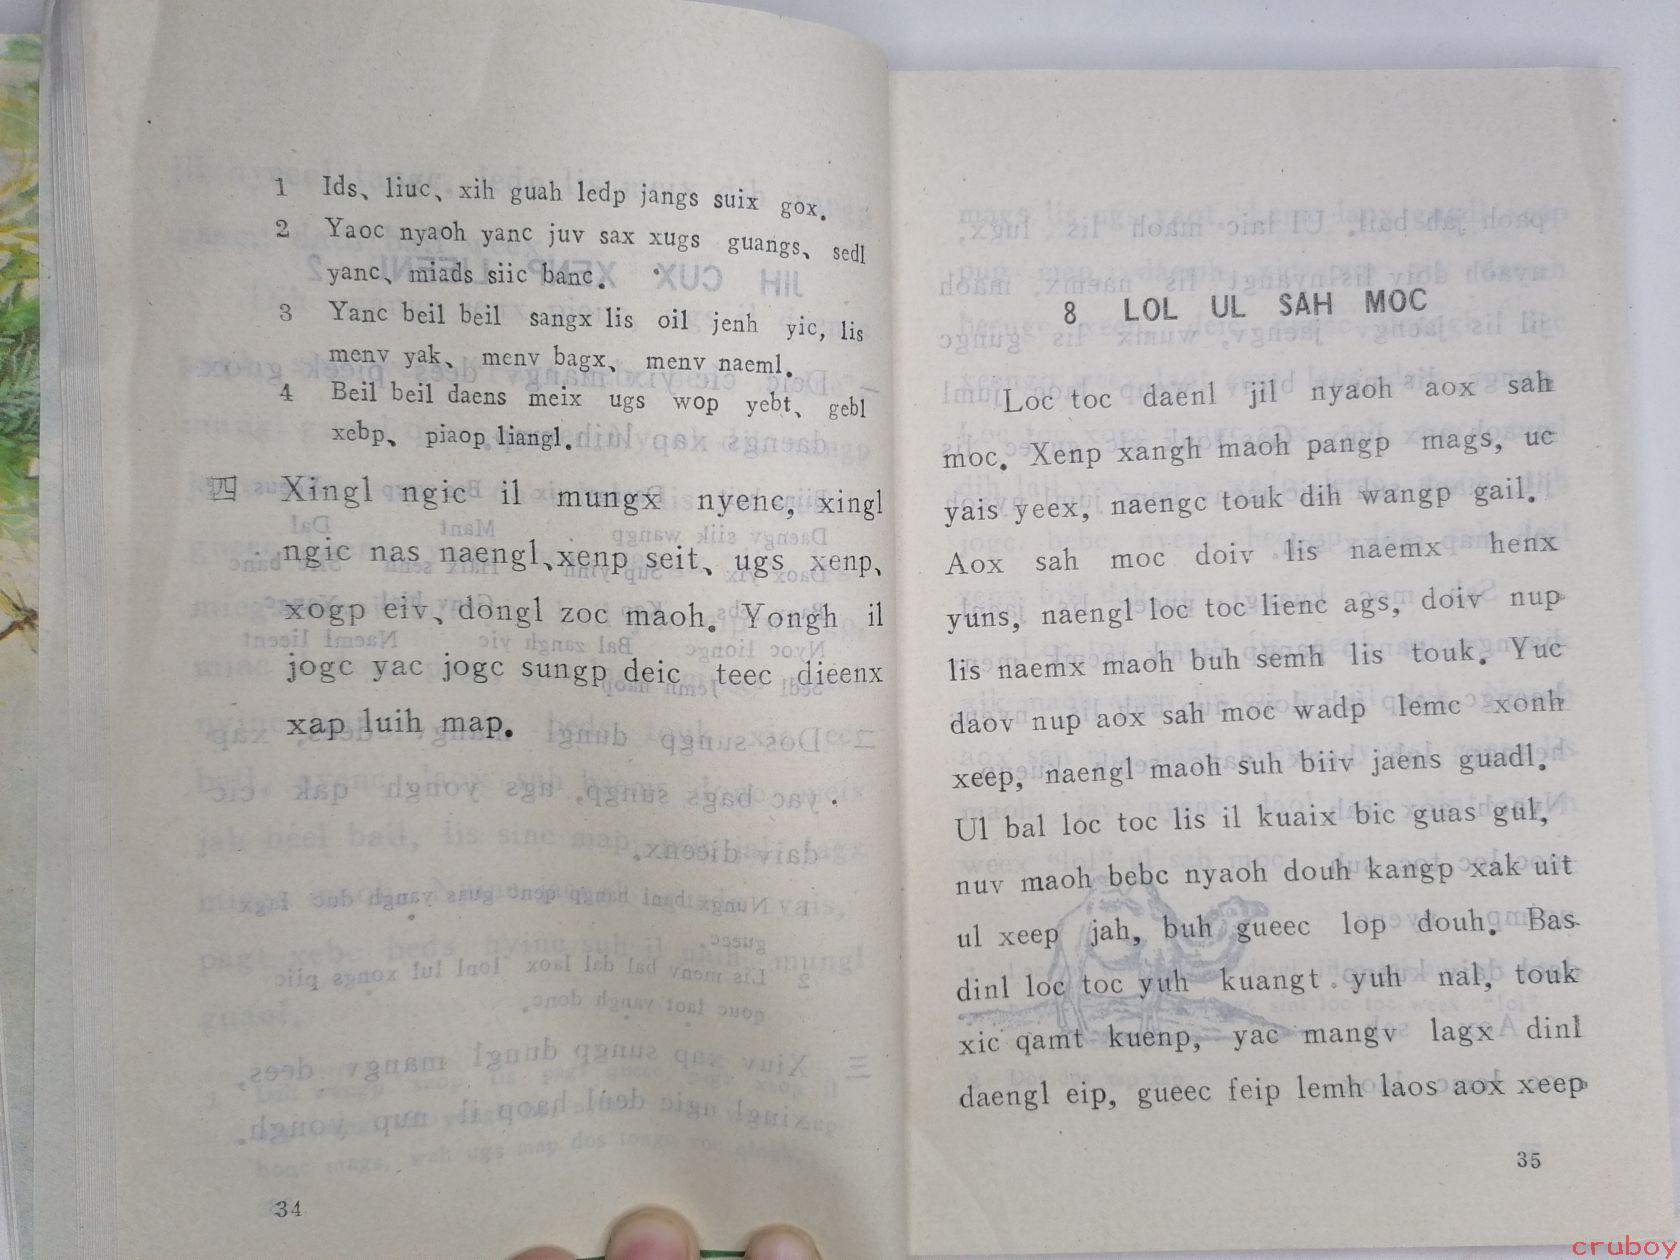 1 Ids、liuc、xih guah ledp jangs suix gox.
2 Yaoc nyaoh yanc juv sax xugs guangs、sedl
yanc、miads siic banc.
3 Yanc beil beil sangx lis oil jenh yic, lis
menv yak、menv bagx、menv naeml.
4 Beil beil daens meix ugs wop yebt、gebl
xebp、piaop liangl.
四 Xingl ngic il mungx nyenc, xingl
ngic nas naengl、xenp seit、ugs xenp、
xogp eiv、dongl zoc maoh. Yongh il
jogc yac jogc sungp deic teec dieenx
xap luih map.
34
8 LOL UL SAH MOC
Loc toc daenl jil nyaoh aox sah
moc. Xenp xangh maoh pangp mags, uc
yais yeex, naengc touk dih wangp gail.
Aox sah moc doiv lis naemx henx
yuns, naengl loc toc lienc ags, doiv nup
lis naemx maoh buh semh lis touk. Yuc
daov nup aox sah moc wadp lemc xonh
xeep, naengl maoh suh biiv jaens guadl.
Ul bal loc toc lis il kuaix bic guas gul,
nuv maoh bebc nyaoh douh kangp xak uit
ul xeep jah, buh gueec lop douh. Bas
dinl loc toc yuh kuangt yuh nal, touk
xic qamt kuenp, yac mangv lagx dinl
daengl eip, gueec feip lemh laos aox xeep
35
cruboy